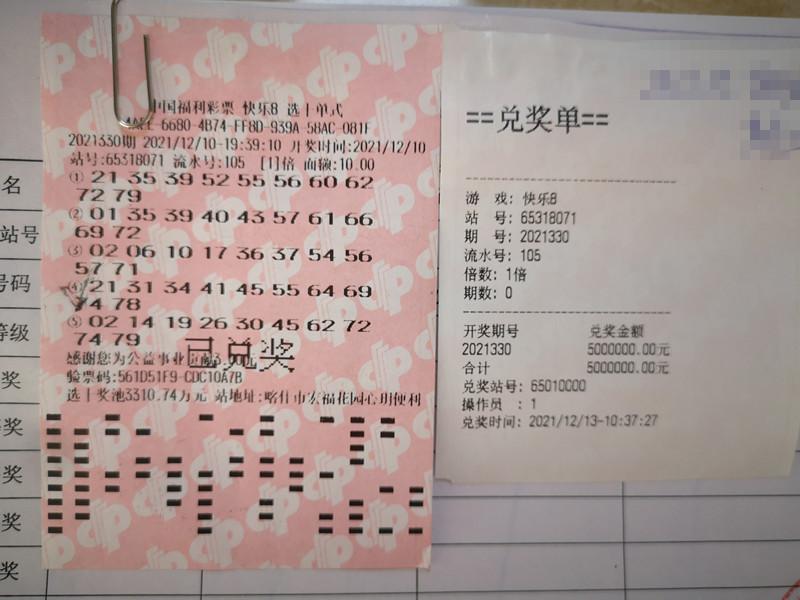 中国福利彩票 快乐8 选十单式
6680-4B74-FF8D-939A-58AC-081F
2021330期 2021/12/10-19:39:10 开奖时间:2021/12/10
站号:65318071 流水号:105 [1]倍 面额:10.00
① 21 35 39 52 55 56 60 62
72 79
② 01 35 39 40 43 57 61 66
69 72
③ 02 06 10 17 36 37 54 56
57 71
④ 21 31 34 41 45 55 64 69
74 78
⑤ 02 14 19 26 30 45 62 72
74 79
已兑奖
感谢您为公益事业
验票码:561D51F9-CDC10A7B
选十奖池3310.74万元 站地址:喀什市宏福花园心玥便利
==兑奖单==
游 戏: 快乐8
站 号: 65318071
期 号: 2021330
流水号: 105
倍数: 1倍
期数: 0
开奖期号 兑奖金额
2021330 5000000.00元
合计 5000000.00元
兑奖站号: 65010000
操作员 : 1
兑奖时间: 2021/12/13-10:37:27
名
站号
号码
等级
奖
奖
奖
奖
奖